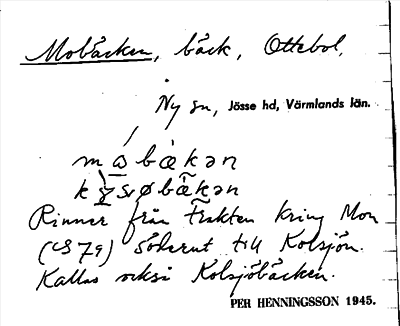 Mobäcken, bäck, Ottebol,
Ny sn, Jösse hd, Värmlands län.
Rinner från trakten kring Mon
söderut till Kolsjön.
Kallas också Kolsjöbäcken.
PER HENNINGSSON 1945.